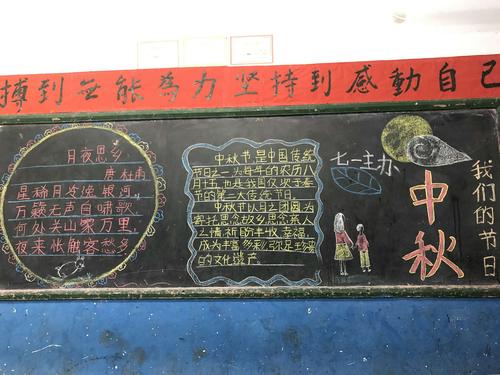 搏到無能為力 坚持到感動自己
月夜思乡
唐 杜甫
星稀月冷逸银河,
万籁无声自啸歌,
何处关山家万里,
夜来怅触客愁多
中秋节是中国传统
节日之一,为每年的农历八
月十五,也是我国仅次于春
节的第二大传统节日
中秋节以月之团圆为
寄托思念故乡思念亲人
之情祈盼丰收、幸福,
成为丰富多彩、弥足珍贵
的文化遗产
七一主办
中秋
我们的节日